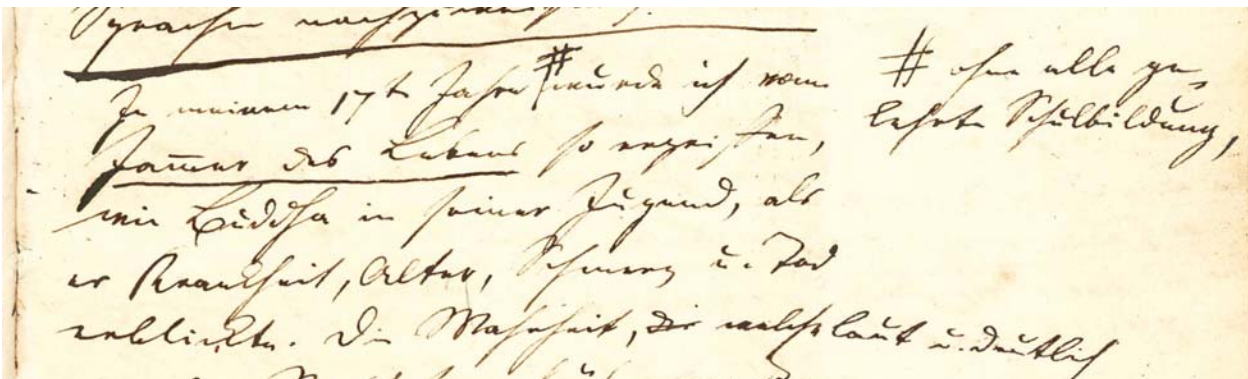 Sprache nachzuweisen.
In meinem 17ten Jahre # wurde ich vom
Jam̄er des Lebens so ergriffen,
wie Buddha in seiner Jugend, als
er Krankheit, Alter, Schmerz u. Tod
erblickte. Die Wahrheit, die welche laut u. deutlich
# ohne alle ge-
lehrte Schulbildung,